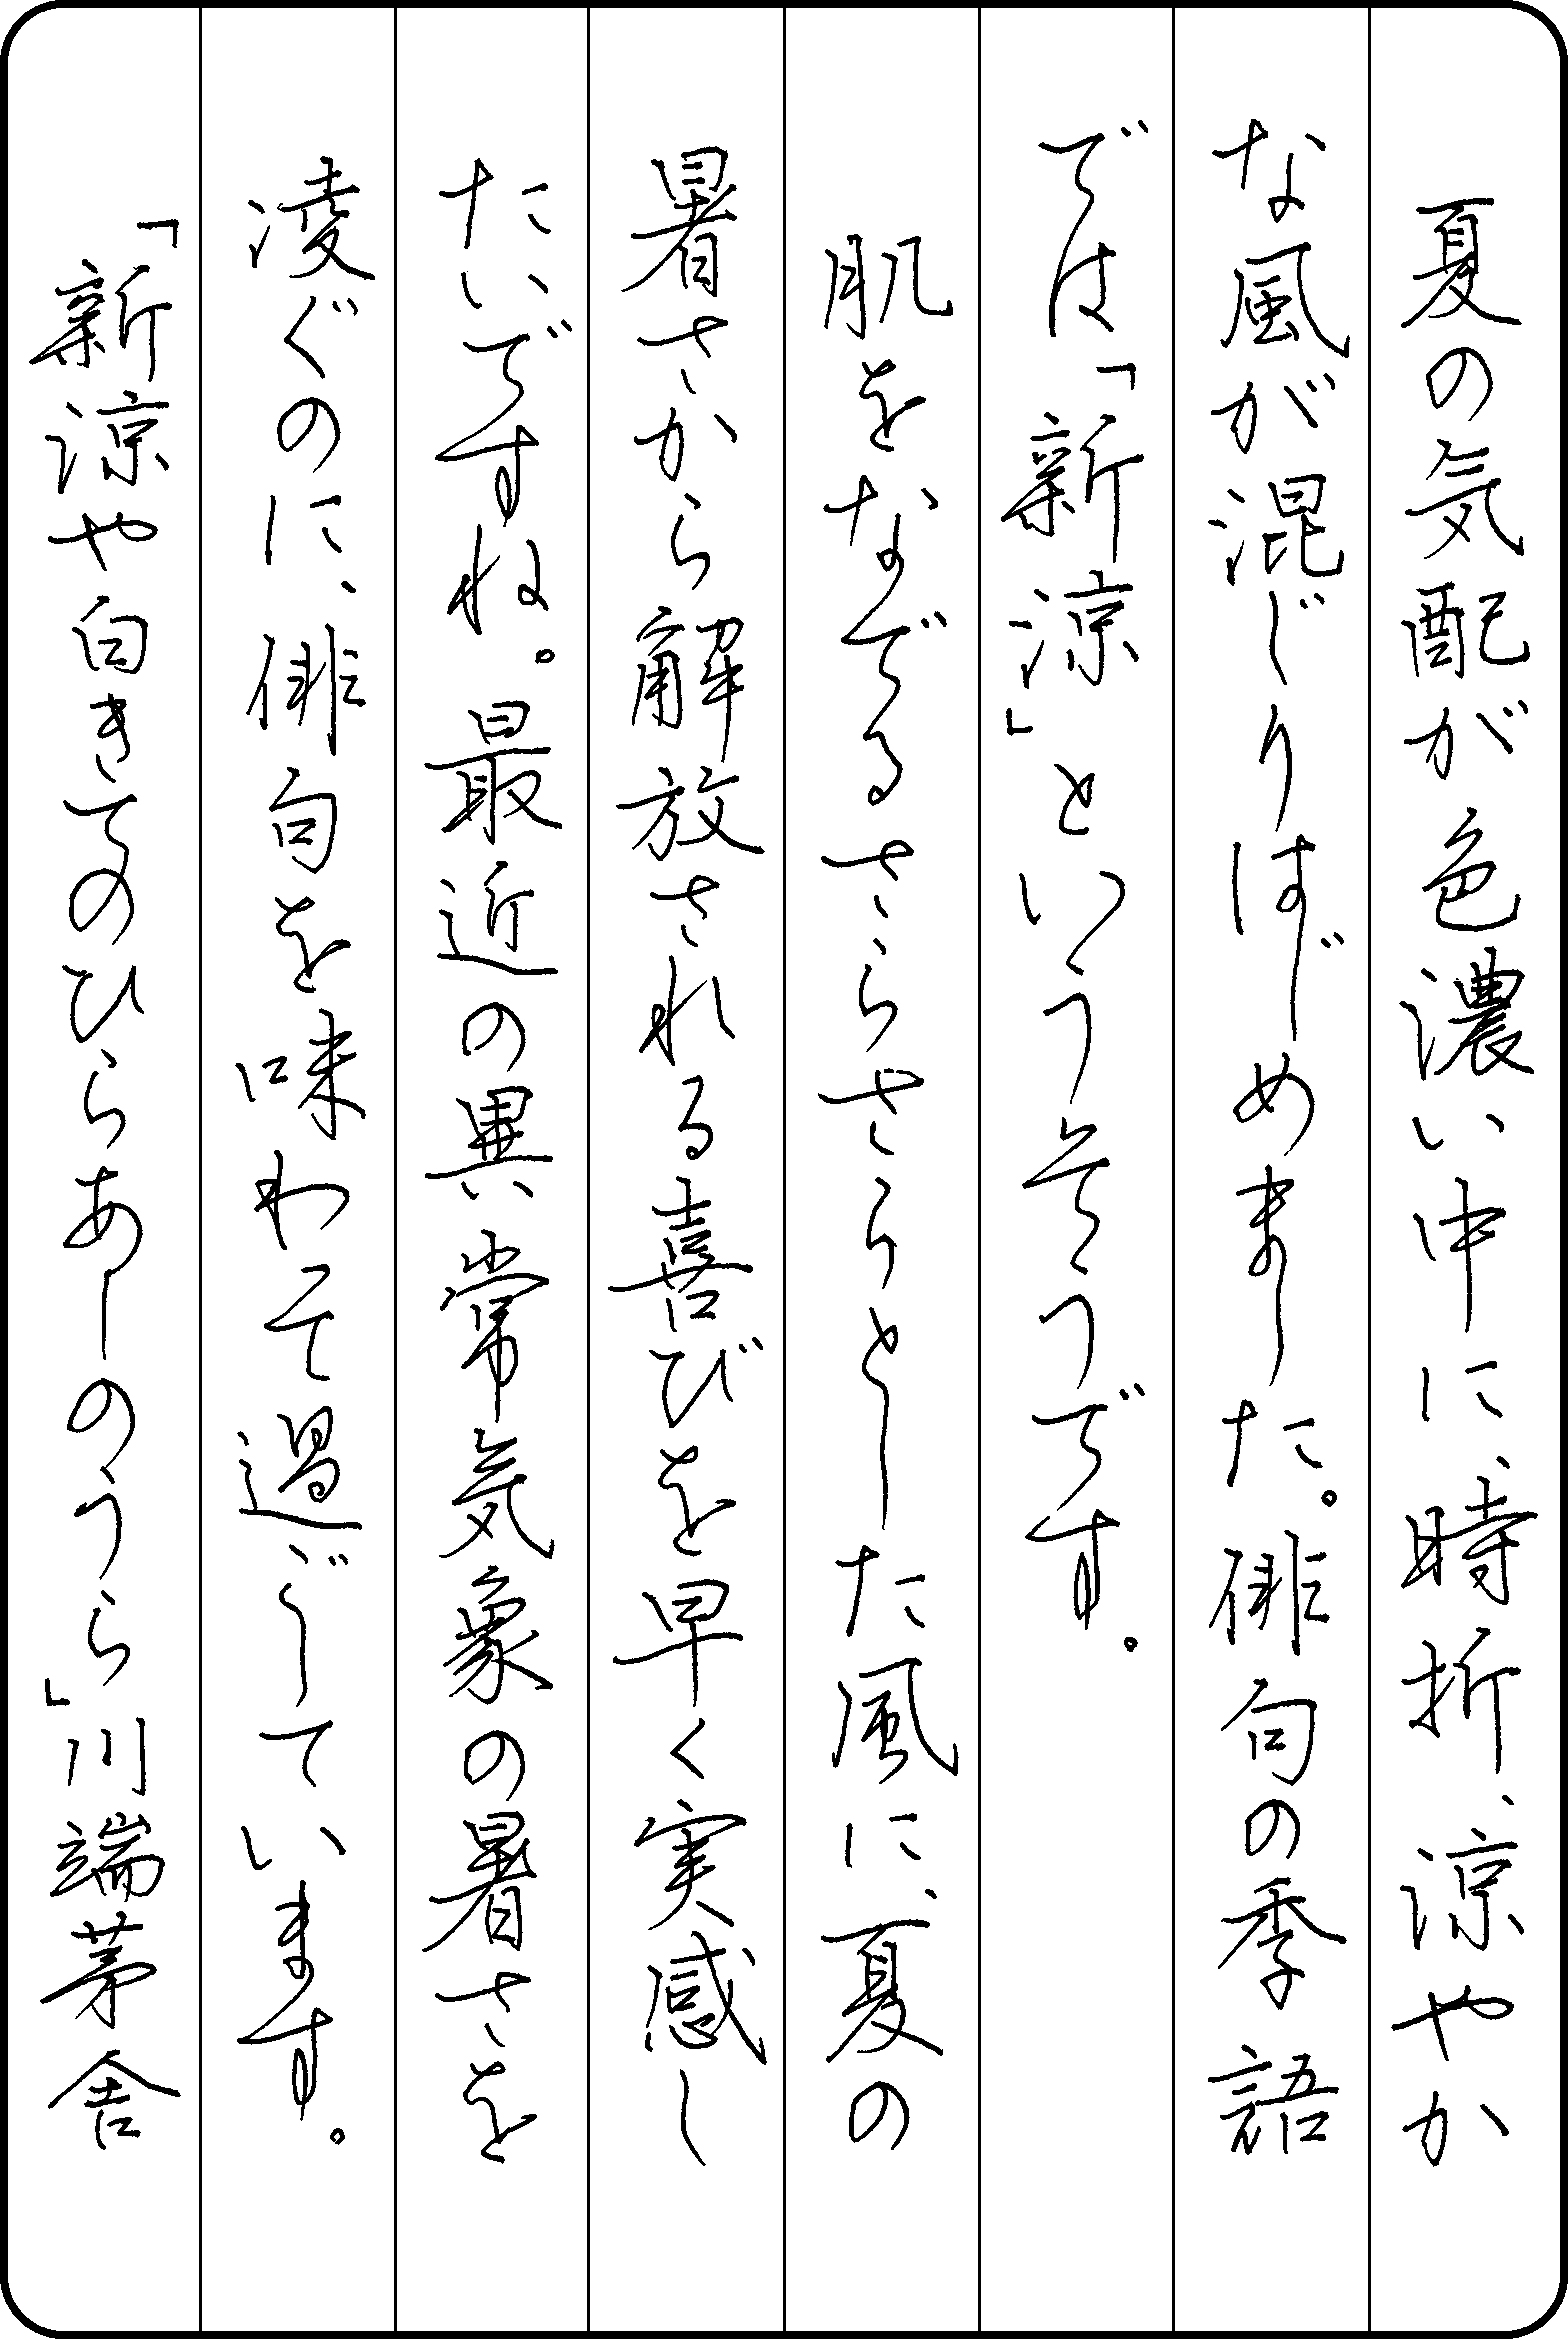 夏の気配が色濃い中に、時折、涼やか
な風が混じりはじめました。俳句の季語
では「新涼」というそうです。
肌をなでるさらさらとした風に、夏の
暑さから解放される喜びを早く実感し
たいですね。最近の異常気象の暑さを
凌ぐのに、俳句を味わって過ごしています。
「新涼や白きてのひらあしのうら」川端茅舎